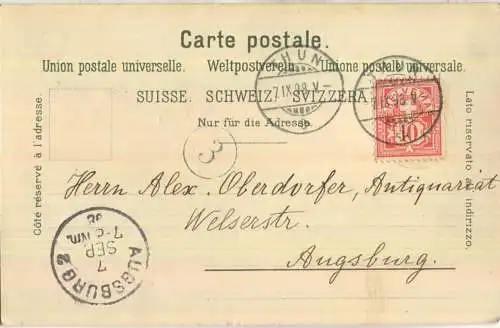 Carte postale.
Union postale universelle. Weltpostverein. Unione postale universale.
SUISSE. SCHWEIZ. SVIZZERA.
Nur für die Adresse.
Côté réservé à l'adresse.
Lato riservato all' indirizzo.
THUN
7.IX.98.V-
THUN
IX.98.V
10
3
Herrn Alex. Oberdorfer, Antiquariat
Welserstr.
Augsburg.
AUGSBURG 2
7
SEP.
7-8 Nm.
98